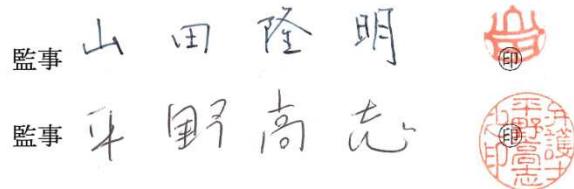 監事 山田隆明 ㊞
監事 平野高志 ㊞
弁護士平野高志之印